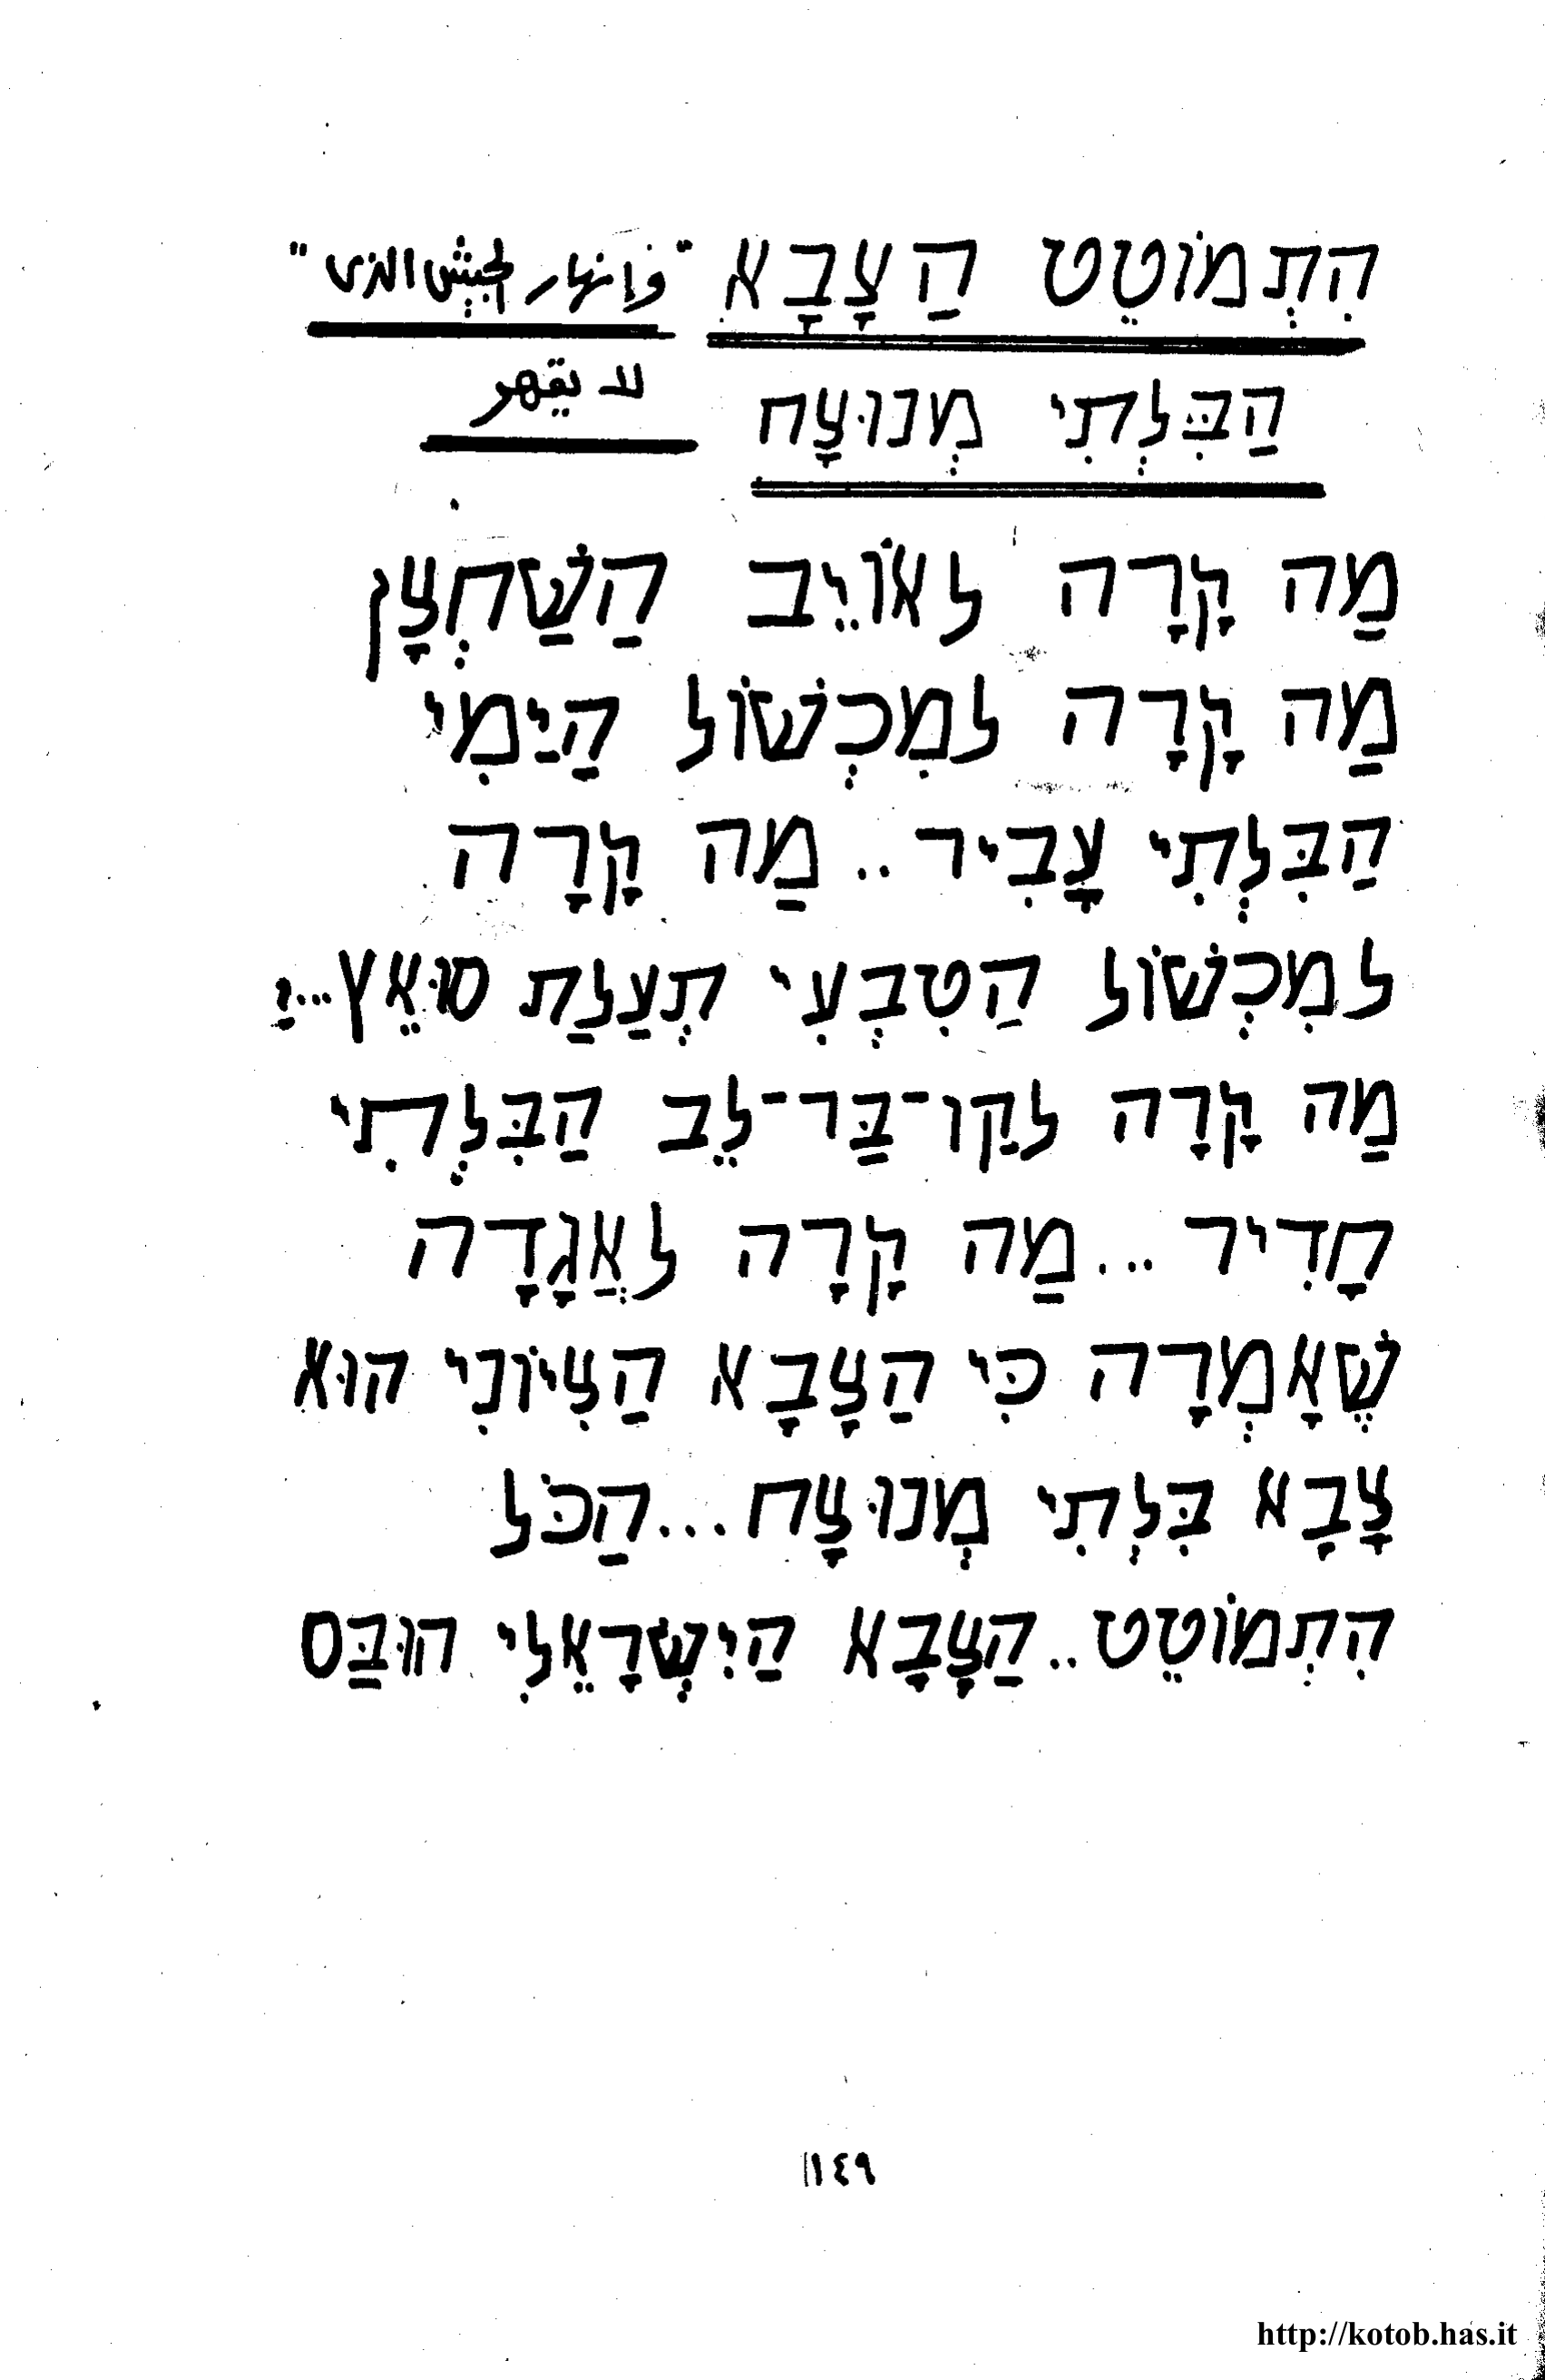 הִתְמוֹטֵט הַצָבָא "وانهار الجيش الذى"
הַבִּלְתִי מְנוּצָח لا يقهر
מַה קָרָה לאוֹיֵב הַשַׁחְצָן
מַה קָרָה למִכְשׁוֹל הַיַמִי
הַבִּלְתִי עָבִיר .. מַה קָרָה
למִכְשׁוֹל הַטִבְעִי תְעַלַת סוּאֵץ...
מַה קָרָה לקַו-בַּר-לֵב הַבִּלְתִי
חָדִיר ... מַה קָרָה לאֲגָדָה
שֶׁאָמְרָה כִּי הַצָבָא הַצִיוֹנִי הוּא
צָבָא בִּלְתִי מְנוּצָח ... הַכֹּל
הִתְמוֹטֵט .. הַצָבָא הַיִשְׂרָאֵלִי הוּבַּס
١٤٩
http://kotob.has.it